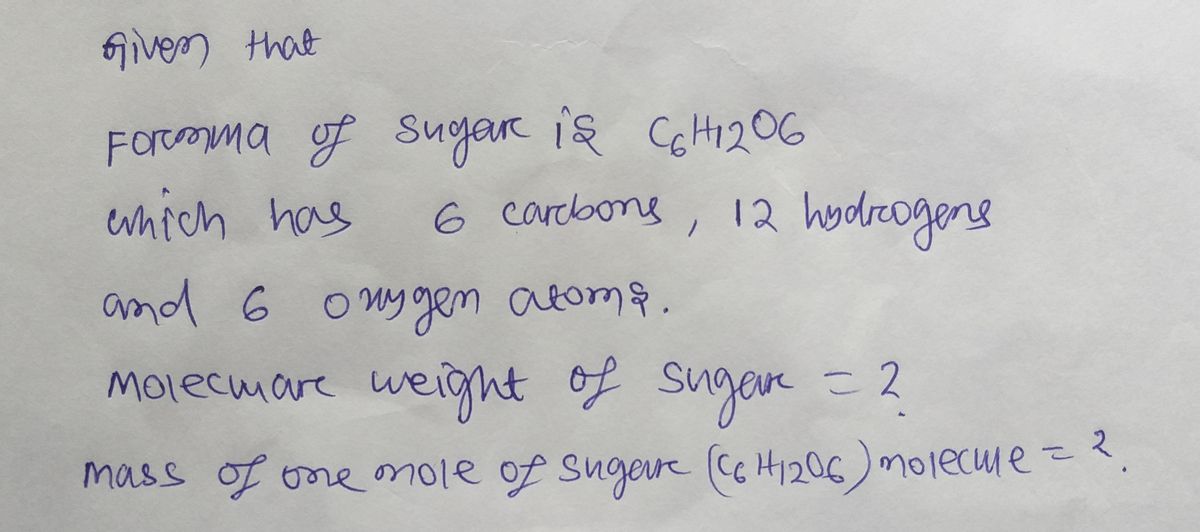 Given that
Formuma of sugar is C6H12O6
which has 6 carbons, 12 hydrogens
and 6 oxygen atoms.
Molecular weight of sugar = ?
mass of one mole of sugar (C6H12O6) molecule = ?.